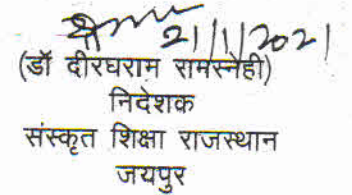 21/1/2021
(डॉ दीरघराम रामस्नेही)
निदेशक
संस्कृत शिक्षा राजस्थान
जयपुर